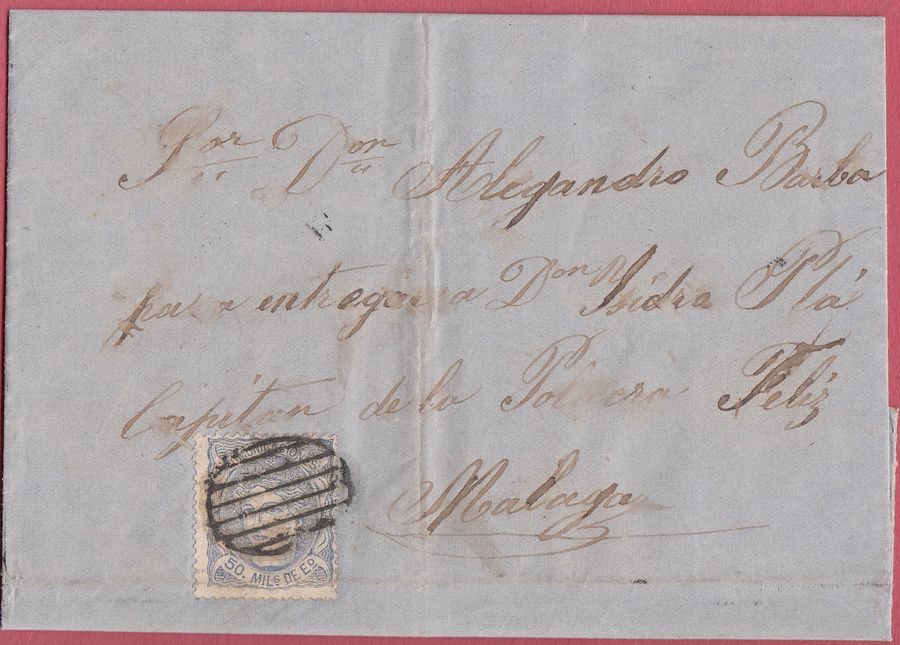 Por Don Alegandro Barba
para entregar a Don Isidro Plá
Capitan de la Polacra Feliz
Malaga
50. MILS DE Eo